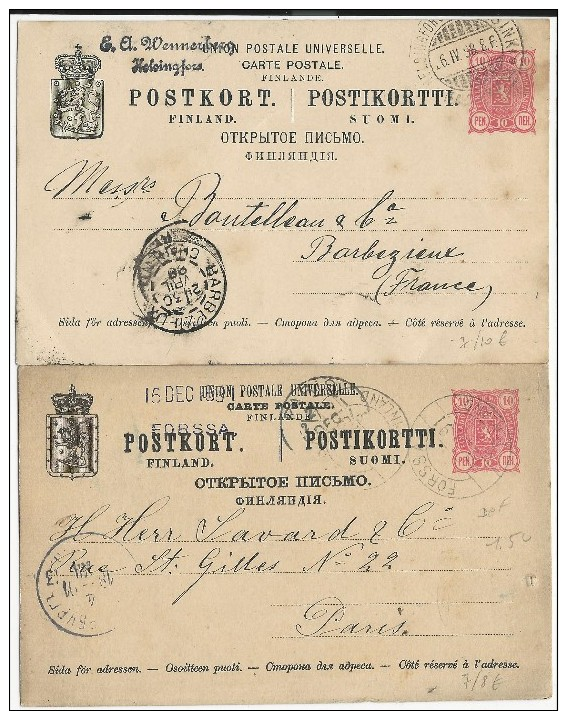 E. A. Wennerberg
Helsingfors.
UNION POSTALE UNIVERSELLE.
CARTE POSTALE.
FINLANDE.
POSTKORT. POSTIKORTTI.
FINLAND. SUOMI.
ОТКРЫТОЕ ПИСЬМО.
ФИНЛЯНДІЯ.
10 10
PEN. 10 ПЕН.
Messrs
Boutelleau & Cª
Barbezieux
(France)
Sida för adressen. — Osoitteen puoli. — Сторона для адреса. — Côté réservé à l'adresse.
7/10 €
16 DEC 1891
FORSSA
UNION POSTALE UNIVERSELLE.
CARTE POSTALE.
FINLANDE
POSTKORT. POSTIKORTTI.
FINLAND. SUOMI.
ОТКРЫТОЕ ПИСЬМО.
ФИНЛЯНДІЯ.
10 10
PEN. 10 ПЕН.
FORSSA
H. Herr Savard & Cie
Rue St. Gilles No 22
Paris.
1.50
Sida för adressen. — Osoitteen puoli. — Сторона для адреса. — Côté réservé à l'adresse.
7/8 €